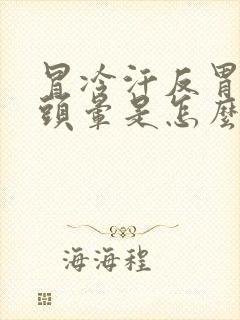 冒冷汗反胃
頭暈是怎麼
海海程